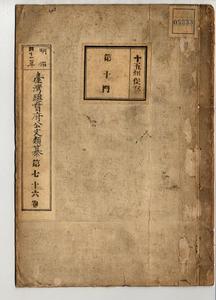 05333
十五年保存
第十門
明治
四十一年
臺灣總督府公文類纂 第七十六卷